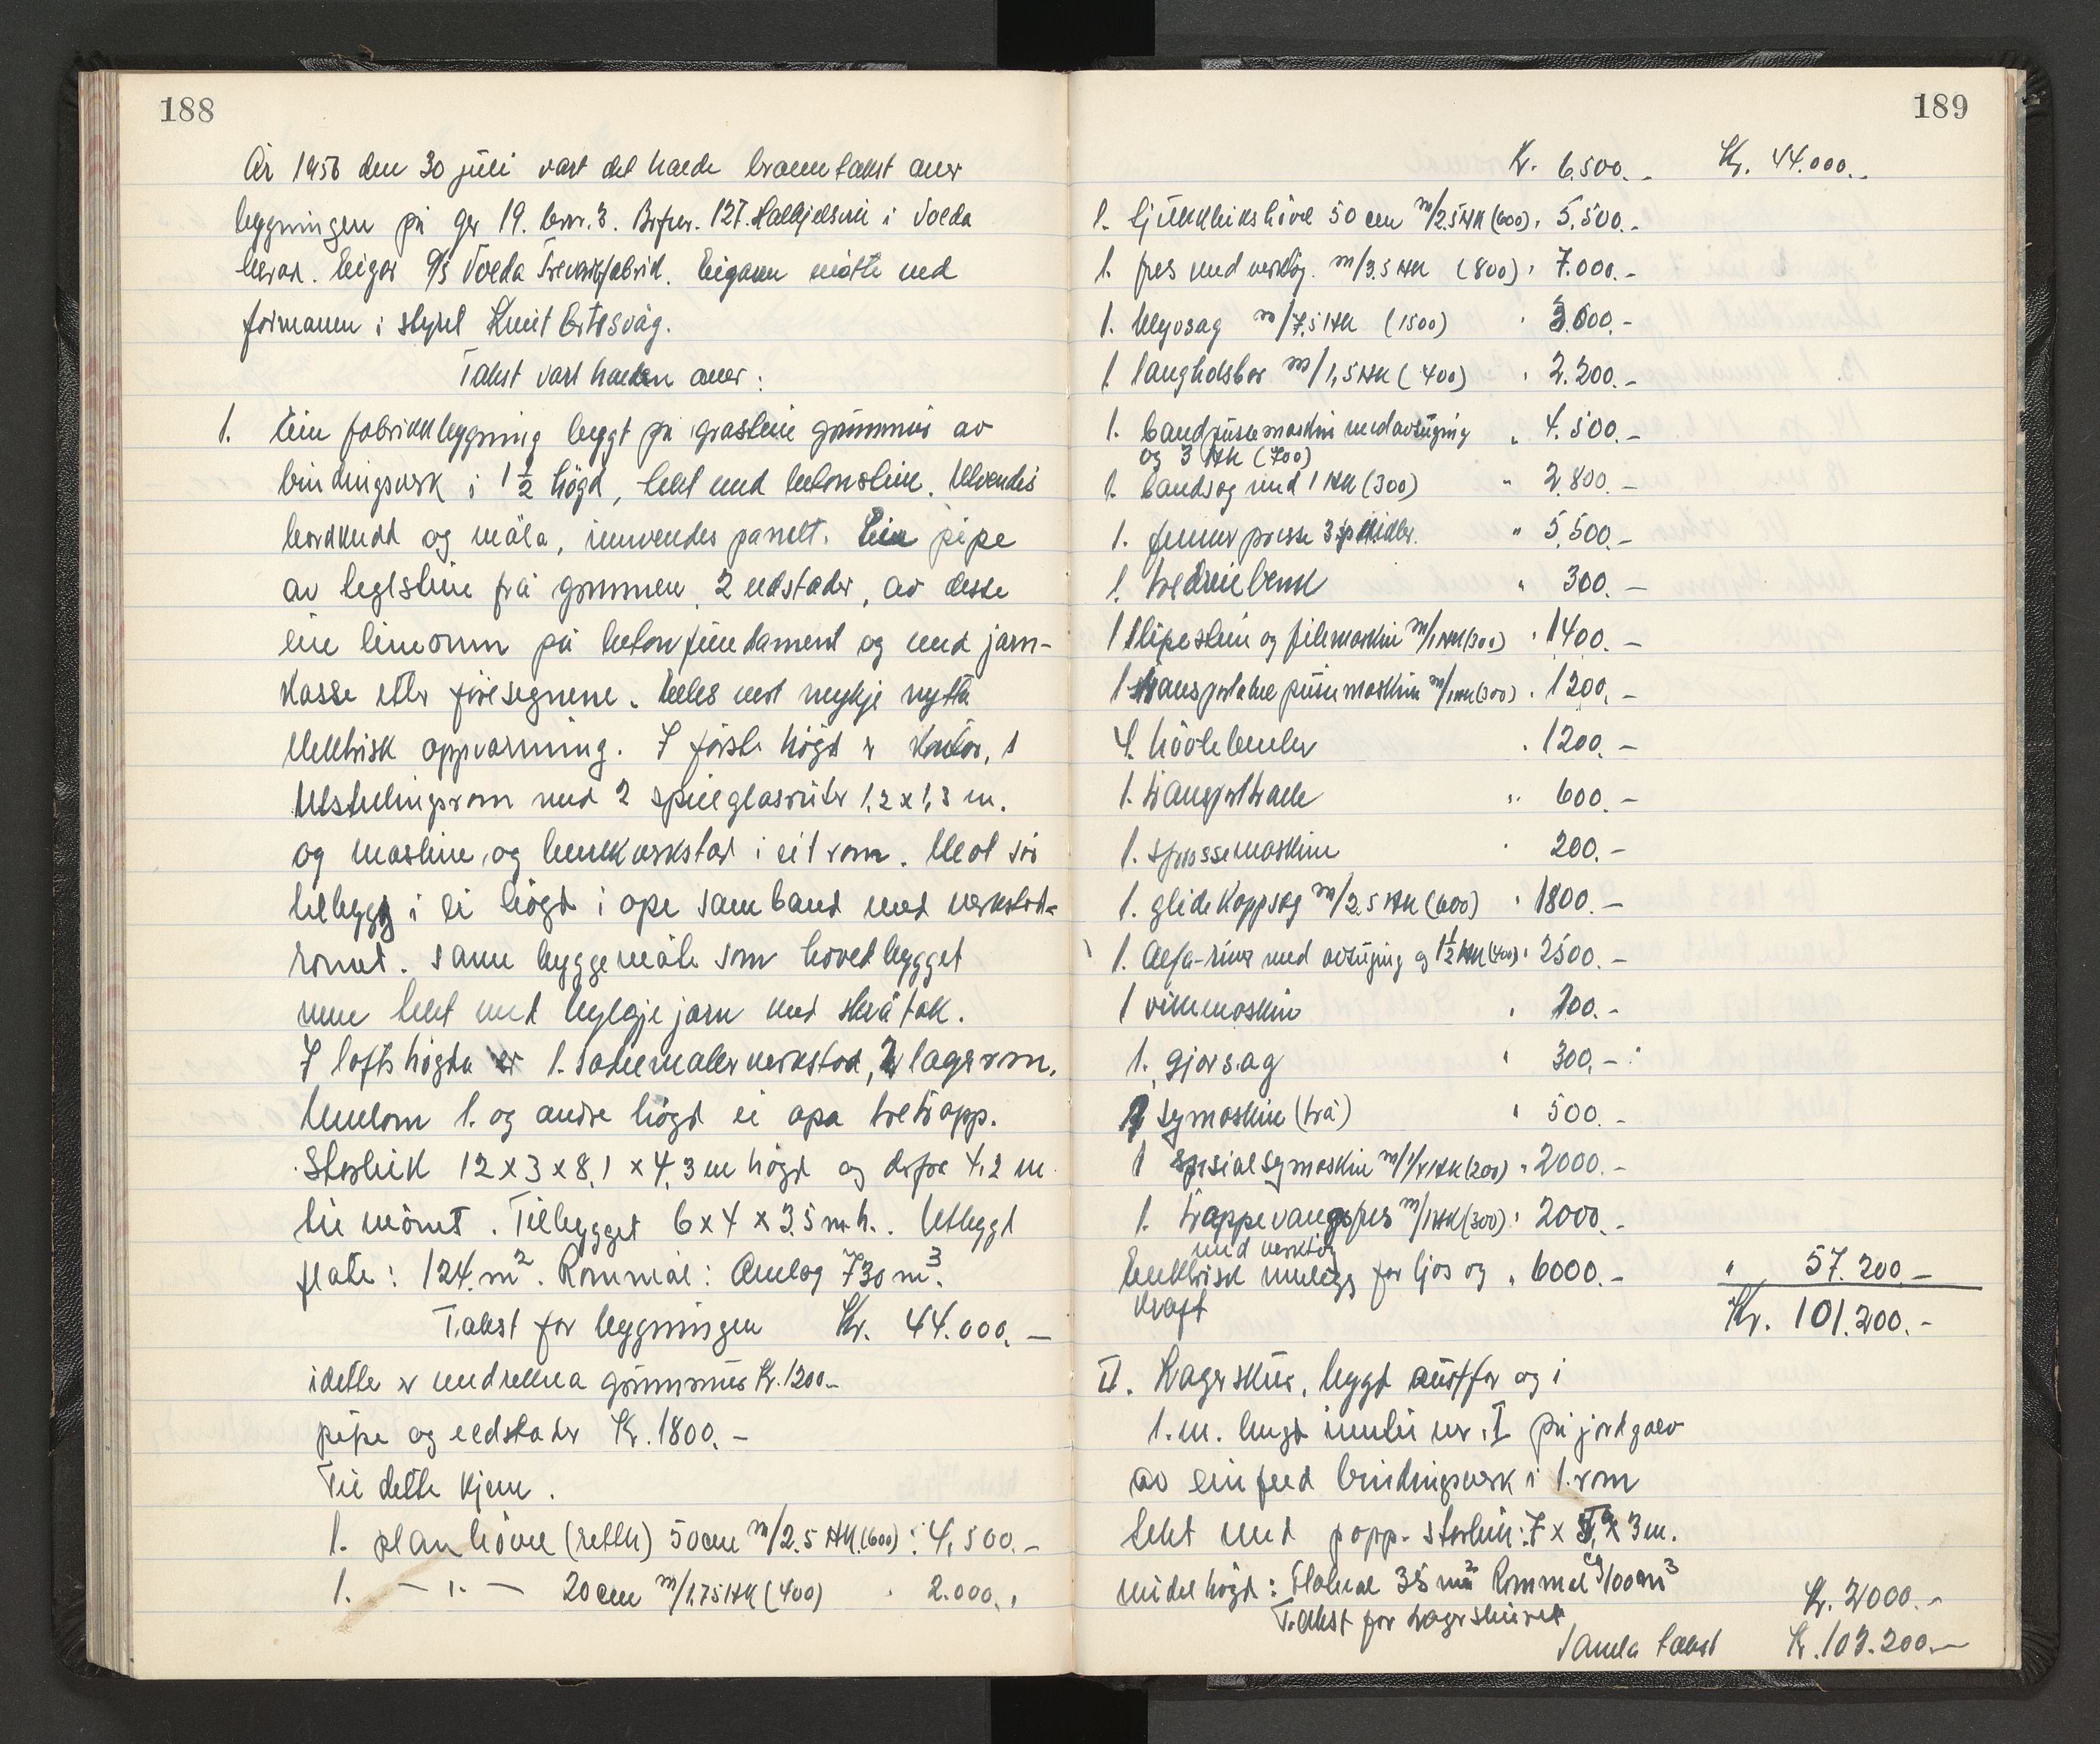 188
År 1956 den 30 juli vart det halde branntakst over
bygningen på gnr 19. bnr. 3. Brfnr. 127. Halkjelsvik i Volda
herad. Eigar A/S Volda Trevarefabrik. Eigaren møtte ved
formannen i styret Knut Ertesvåg.
Takst vart halden over:
1. Ein fabrikkbygning bygt på gråstein grunnmur av
bindingsverk i 1½ högd, tekt med betonstein. Utvendes
bordkledd og måla, innvendes panelt. Ein pipe
av teglstein frå grunnen, 2 eldstader, av desse
ein limomn på betonfundament og med jarn-
kasse etter föresegnene. Elles vert mykje nytta
elektrisk oppvarming. I förste högd er kontor, 1
utstillingsrom med 2 speilglasruter 1,2 x 1,3 m.
og maskin og benkverkstad i eit rom. Mot sör
tilbygg i ei högd i ope samband med verkstad-
romet. Same byggemåte som hovedbygget
men tekt med bylgjejarn med skråtak.
I loftshögda er 1. salmemakerverkstad, 2 lagerrom.
Mellom 1. og andre högd ei opa tretrapp.
Storleik 12 x 3 x 8,1 x 4,3 m högd og derfrå 4,2 m
til mönet. Tilbygget 6 x 4 x 3.5 m h. Utbygt
flate: 124 m². Rommål: Omlag 730 m³.
Takst for bygningen Kr. 44.000.—
i dette er medrekna grunnmur Kr. 1200.—
pipe og eldstader Kr. 1800.—
Til dette kjem.
1. planhövel (retth) 50 cm m/2.5 HK (600) : 4,500.—
1. — " — 20 cm m/1.75 HK (400) " 2.000.,
189
Kr. 6.500.— Kr. 44.000.—
1. tjukkleikshövel 50 cm m/2.5 HK (600) " 5,500.—
1. fres med verktög. m/3.5 HK (800) " 7.000.—
1. klyvsag m/7,5 HK (1500) " 3.000.—
1. langholsbor m/1,5 HK (400) " 2.200.—
1. bandpussemaskin med avsuging " 4.500.—
og 3 HK (700)
1. bandsag med 1 HK (300) " 2.800.—
1. finerpresse 3 spindler. " 5,500.—
1. tredreiebenk " 300.—
1 slipestein og filemaskin m/1 HK (300) " 1400.—
1 transportabel pussemaskin m/1 HK (300) " 1200.—
4. hövlebenker " 1200.—
1. transporttralle " 600.—
1. sprossemaskin " 200.—
1. glidekappsag m/2.5 HK (600) " 1800.—
1. Alfa-river med avsuging og 1½ HK (400) " 2500.—
1 vikemaskin " 200.—
1. gjersag " 300.—
2 symaskin (trå) " 500.—
1 spesialsymaskin m/¼ HK (200) " 2000.—
1. trappevangsfres m/1 HK (300) " 2000.—
med verktög
Elektrisk innlegg for ljos og " 6000.— " 57.200.—
kraft
Kr. 101.200.—
II. Lagerskur, bygd austfor og i
1. m. lengd inntil nr. I på jordgolv
av einfeld bindingsverk i 1. rom
tekt med papp. Storleik: 7 x 5 x 3 m.
midel högd: Flatemål 35 m² Rommål 100 m³
Takst for lagerskuret Kr. 2000.—
Samla takst Kr. 103.200.—